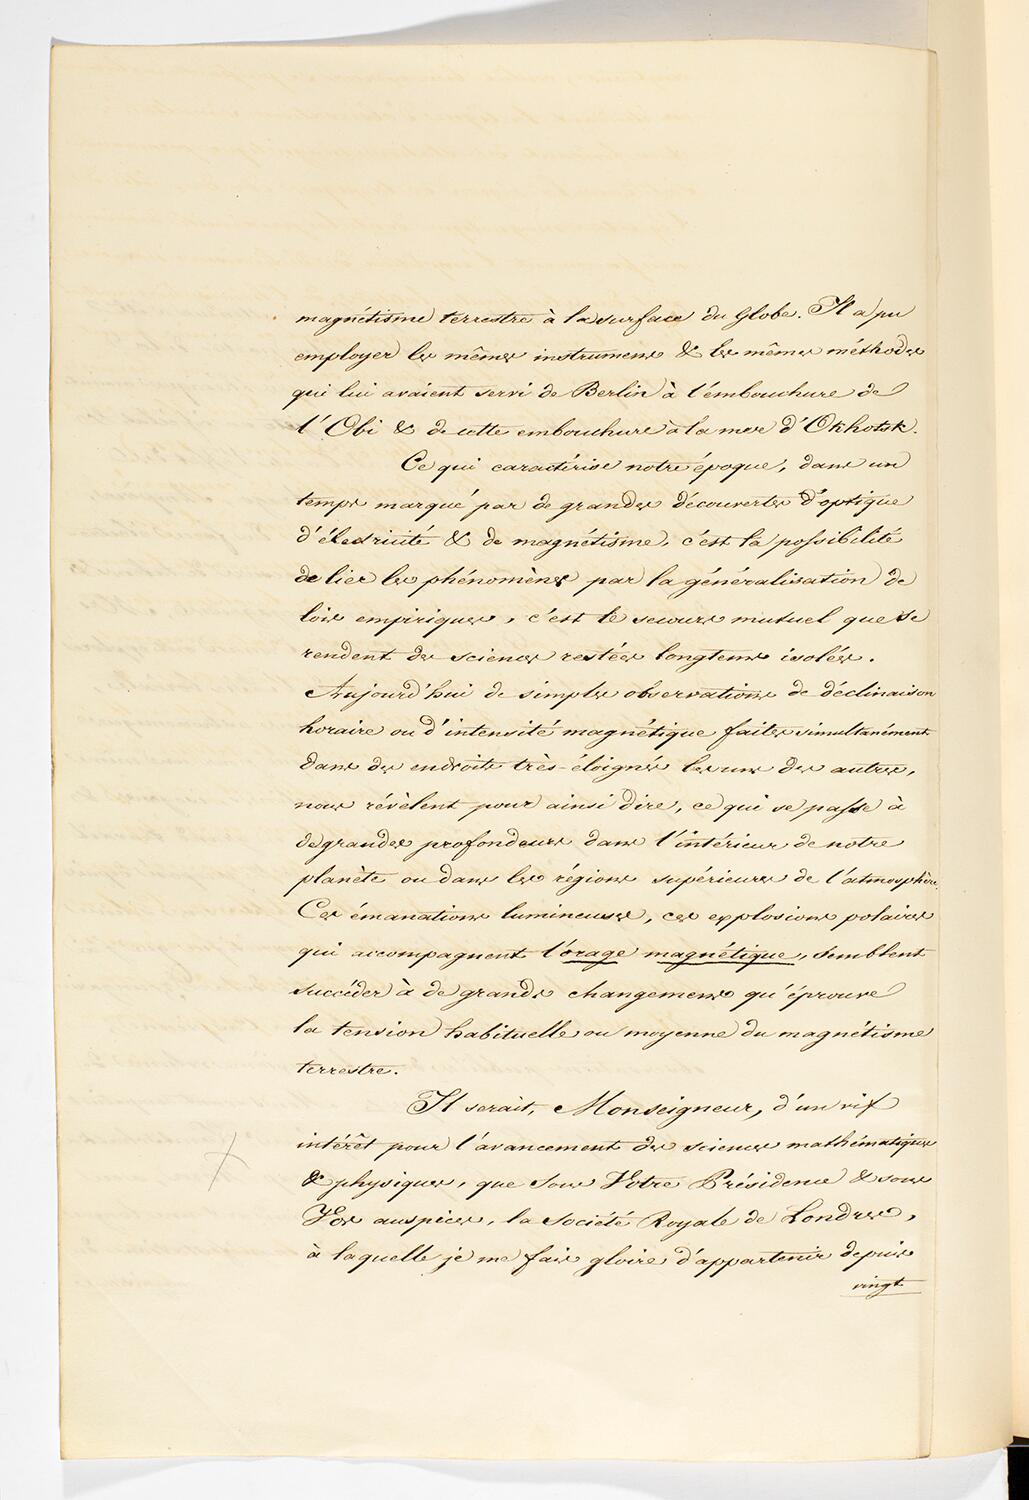 magnétisme terrestre à la surface du Globe. Il a pu
employer les mêmes instrumens & les mêmes méthodes
qui lui avaient servi de Berlin à l'embouchure de
l'Obi & de cette embouchure à la mer d'Okhotsk.
Ce qui caractérise notre époque, dans un
temps marqué par de grandes découvertes d'optique
d'électricité & de magnétisme, c'est la possibilité
de lier les phénomènes par la généralisation de
lois empiriques, c'est le secours mutuel que se
rendent des sciences restées longtems isolées.
Aujourd'hui de simples observations de déclinaison
horaire ou d'intensité magnétique faites simultanément
dans des endroits très-éloignés les uns des autres,
nous révèlent pour ainsi dire, ce qui se passe à
de grandes profondeurs dans l'intérieur de notre
planète ou dans les régions supérieures de l'atmosphère.
Ces émanations lumineuses, ces explosions polaires
qui accompagnent l'orage magnétique, semblent
succéder à de grands changemens qu'éprouve
la tension habituelle ou moyenne du magnétisme
terrestre.
Il serait, Monseigneur, d'un vif
intérêt pour l'avancement des sciences mathématiques
& physiques, que sous Votre Présidence & sous
Vos auspices, la Société Royale de Londres,
à laquelle je me fais gloire d'appartenir depuis
vingt